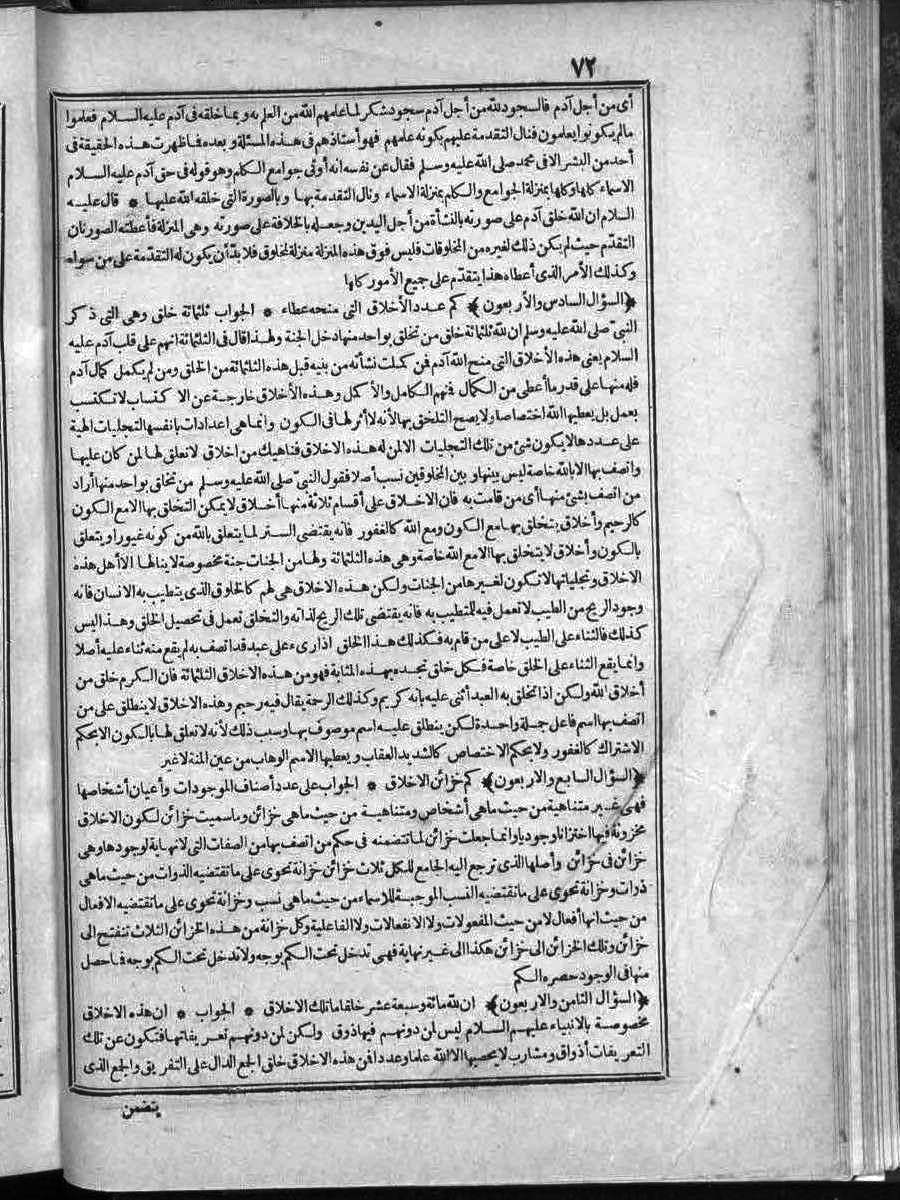 ٧٢
أى من أجل آدم فالسجود لله من أجل آدم سجود شكر لما علمهم الله من العلم به وبما خلقه فى آدم عليه السلام فعلموا
مالم يكونوا يعلمون فنال التقدمة عليهم بكونه علمهم فهو أستاذهم فى هذه المسئلة وبعده فما ظهرت هذه الحقيقة فى
أحد من البشر الا فى محمد صلى الله عليه وسلم فقال عن نفسه انه أوتى جوامع الكلم وهو قوله فى حق آدم عليه السلام
الاسماء كلها وكلها بمنزلة الجوامع والكلم بمنزلة الاسماء ونال التقدمة بها وبالصورة التى خلقه الله عليها * قال عليه
السلام ان الله خلق آدم على صورته بالنشأة من أجل اليدين وجعله بالخلافة على صورته وهى المنزلة فأعطته الصورتان
التقدّم حيث لم يكن ذلك لغيره من المخلوقات فليس فوق هذه المنزلة منزلة لمخلوق فلا بدّ أن يكون له التقدمة على من سواه
وكذلك الأمر الذى أعطاه هذا يتقدّم على جميع الأمور كلها
﴿السؤال السادس والأربعون﴾ كم عدد الأخلاق التى منحه عطاء * الجواب ثلثمائة خلق وهى التى ذكر
النبىّ صلى الله عليه وسلم ان لله ثلثمائة خلق من تخلق بواحد منها دخل الجنة ولهذا قال فى الثلثمائة انهم على قلب آدم عليه
السلام يعنى هذه الأخلاق التى منح الله آدم فمن كملت نشأته من بنيه قبل هذه الثلثمائة من الخلق ومن لم يكمل كمال آدم
فله منها على قدر ما أعطى من الكمال فمنهم الكامل والأكمل وهذه الأخلاق خارجة عن الاكتساب لا تكتسب
بعمل بل يعطيها الله اختصاصا ولا يصح التلحق بها لأنه لا أثر لها فى الكون وانما هى اعدادات بأنفسها لتجليات الهية
على عددها لا يكون شئ من تلك التجليات الا لمن له هذه الاخلاق فناهيك من اخلاق لا تعلق لها لمن كان عليها
واتصف بها الا بالله خاصة ليس بينها وبين المخلوقين نسب أصلا فقول النبىّ صلى الله عليه وسلم من تخلق بواحد منها أراد
من اتصف بشئ منها أى من قامت به فان الاخلاق على أقسام ثلاثة منها أخلاق لا يمكن التخلق بها الا مع الكون
كالرحيم وأخلاق يتخلق بها مع الكون ومع الله كالغفور فانه يقتضى الستر لما يتعلق بالله من كونه غيورا ويتعلق
بالكون وأخلاق لا يتخلق بها الا مع الله خاصة وهى هذه الثلثمائة ولها من الجنات جنة مخصوصة لا ينالها الا أهل هذه
الاخلاق وتجلياتها لا تكون لغيرها من الجنات ولكن هذه الاخلاق هى لهم كالخلوق الذى يتطيب به الانسان فانه
وجود الريح من الطيب لا تعمل فيه للمتطيب به فانه يقتضى تلك الريح لذاته والتخلق تعمل فى تحصيل الخلق وهذا ليس
كذلك فالثناء على الطيب لا على من قام به فكذلك هذا الخلق اذا رىء على عبد قد اتصف به لم يقع منه ثناء عليه أصلا
وانما يقع الثناء على الخلق خاصة فكل خلق تجده بهذه المثابة فهو من هذه الاخلاق الثلثمائة فان الكرم خلق من
أخلاق الله ولكن اذا تخلق به العبد أثنى عليه بأنه كريم وكذلك الرحمة يقال فيه رحيم وهذه الاخلاق لا ينطلق على من
اتصف بها اسم فاعل جملة واحدة لكن ينطلق عليه اسم موصوف بها وسبب ذلك لأنه لا تعلق لها بالكون الا بحكم
الاشتراك كالغفور ولا بحكم الاختصاص كالشديد العقاب ويعطيها الاسم الوهاب من عين المنة لا غير
﴿السؤال السابع والاربعون﴾ كم خزائن الاخلاق * الجواب على عدد أصناف الموجودات وأعيان أشخاصها
فهى غير متناهية من حيث ما هى أشخاص ومتناهية من حيث ما هى خزائن وما سميت خزائن لكون الاخلاق
مخزونة فيها اختزانا وجوديا وانما جعلت خزائن لما تتضمنه فى حكم من اتصف بها من الصفات التى لا نهاية لوجودها وهى
خزائن فى خزائن وأصلها الذى ترجع اليه الجامع للكل ثلاث خزائن خزانة تحوى على ما تقتضيه الذوات من حيث ما هى
ذوات وخزانة تحوى على ما تقتضيه النسب الموجبة للاسماء من حيث ما هى نسب وخزانة تحوى على ما تقتضيه الافعال
من حيث انها أفعال لا من حيث المفعولات ولا الانفعالات ولا الفاعلية وكل خزانة من هذه الخزائن الثلاث تنفتح الى
خزائن وتلك الخزائن الى خزائن هكذا الى غير نهاية فهى تدخل تحت الكم بوجه ولا تدخل تحت الكم بوجه فما حصل
منها فى الوجود حصره الكم
﴿السؤال الثامن والاربعون﴾ ان لله مائة وسبعة عشر خلقا ما تلك الاخلاق * الجواب * ان هذه الاخلاق
مخصوصة بالانبياء عليهم السلام ليس لمن دونهم فيها ذوق ولكن لمن دونهم تعريفاتها فتكون عن تلك
التعريفات أذواق ومشارب لا يحصيها الا الله علما وعددا فمن هذه الاخلاق خلق الجمع الدال على التفريق والجمع الذى
يتضمن